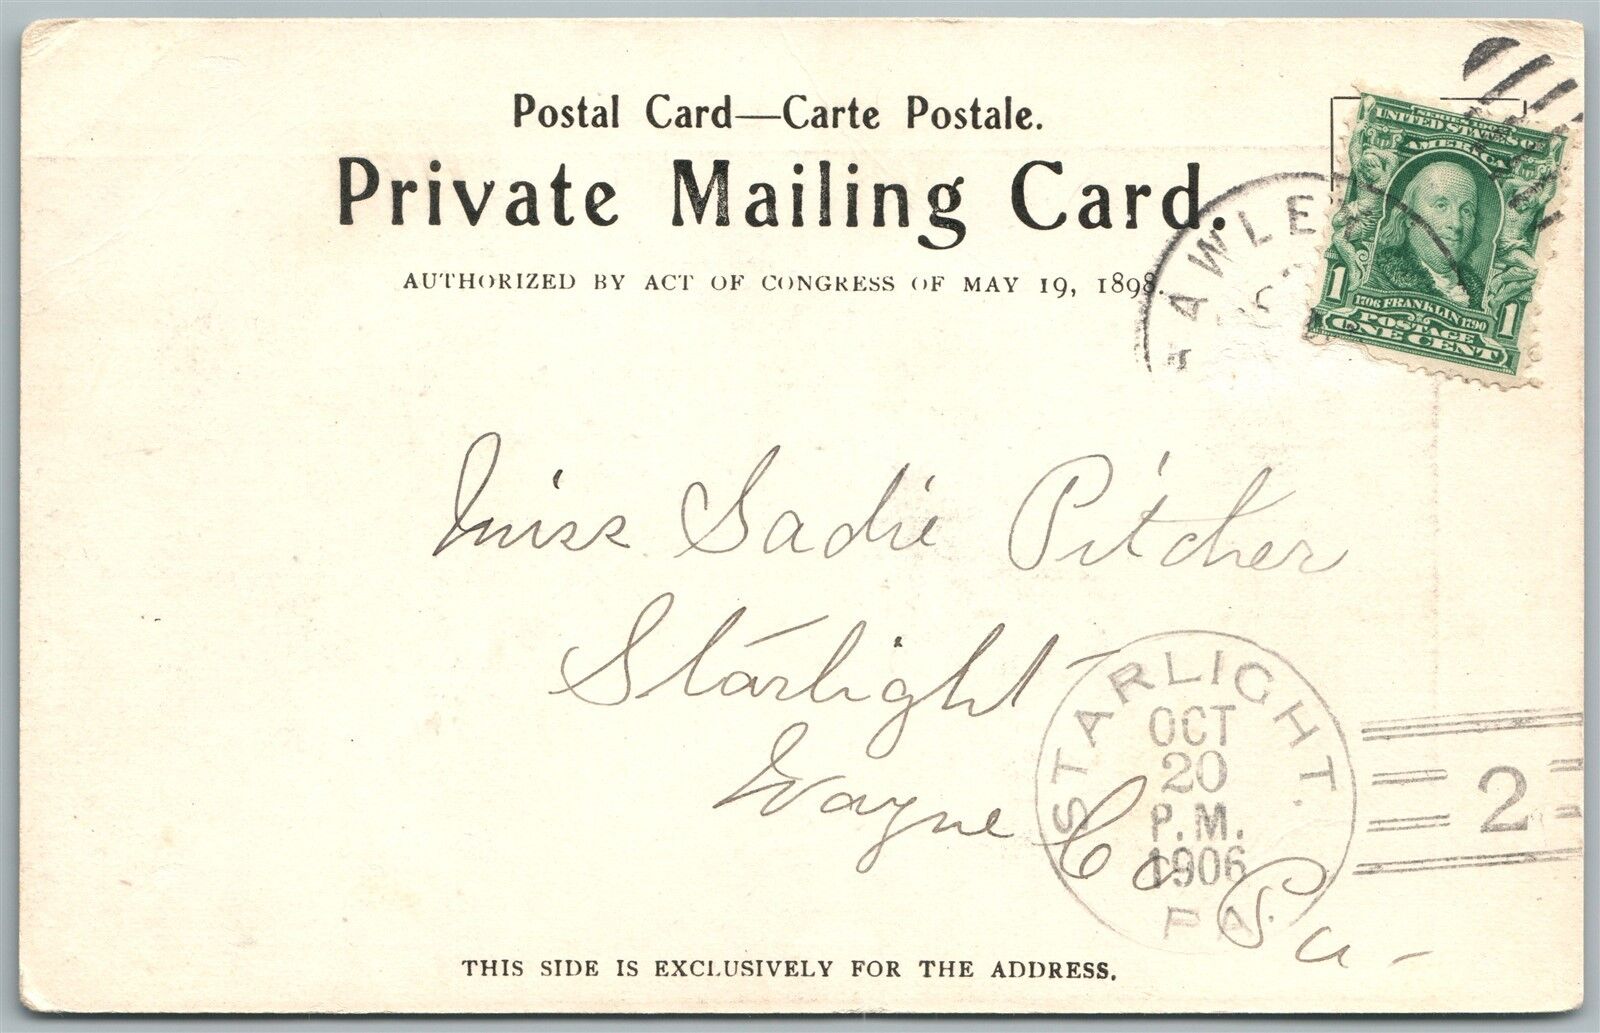 Postal Card—Carte Postale.
Private Mailing Card.
AUTHORIZED BY ACT OF CONGRESS OF MAY 19, 1898.
HAWLEY
OC
UNITED STATES OF
AMERICA
1 1
1706 FRANKLIN 1790
POSTAGE
ONE CENT
Miss Sadie Pitcher
Starlight
Wayne Co Pa-
STARLIGHT.
OCT
20
P.M.
1906
PA.
2
THIS SIDE IS EXCLUSIVELY FOR THE ADDRESS.